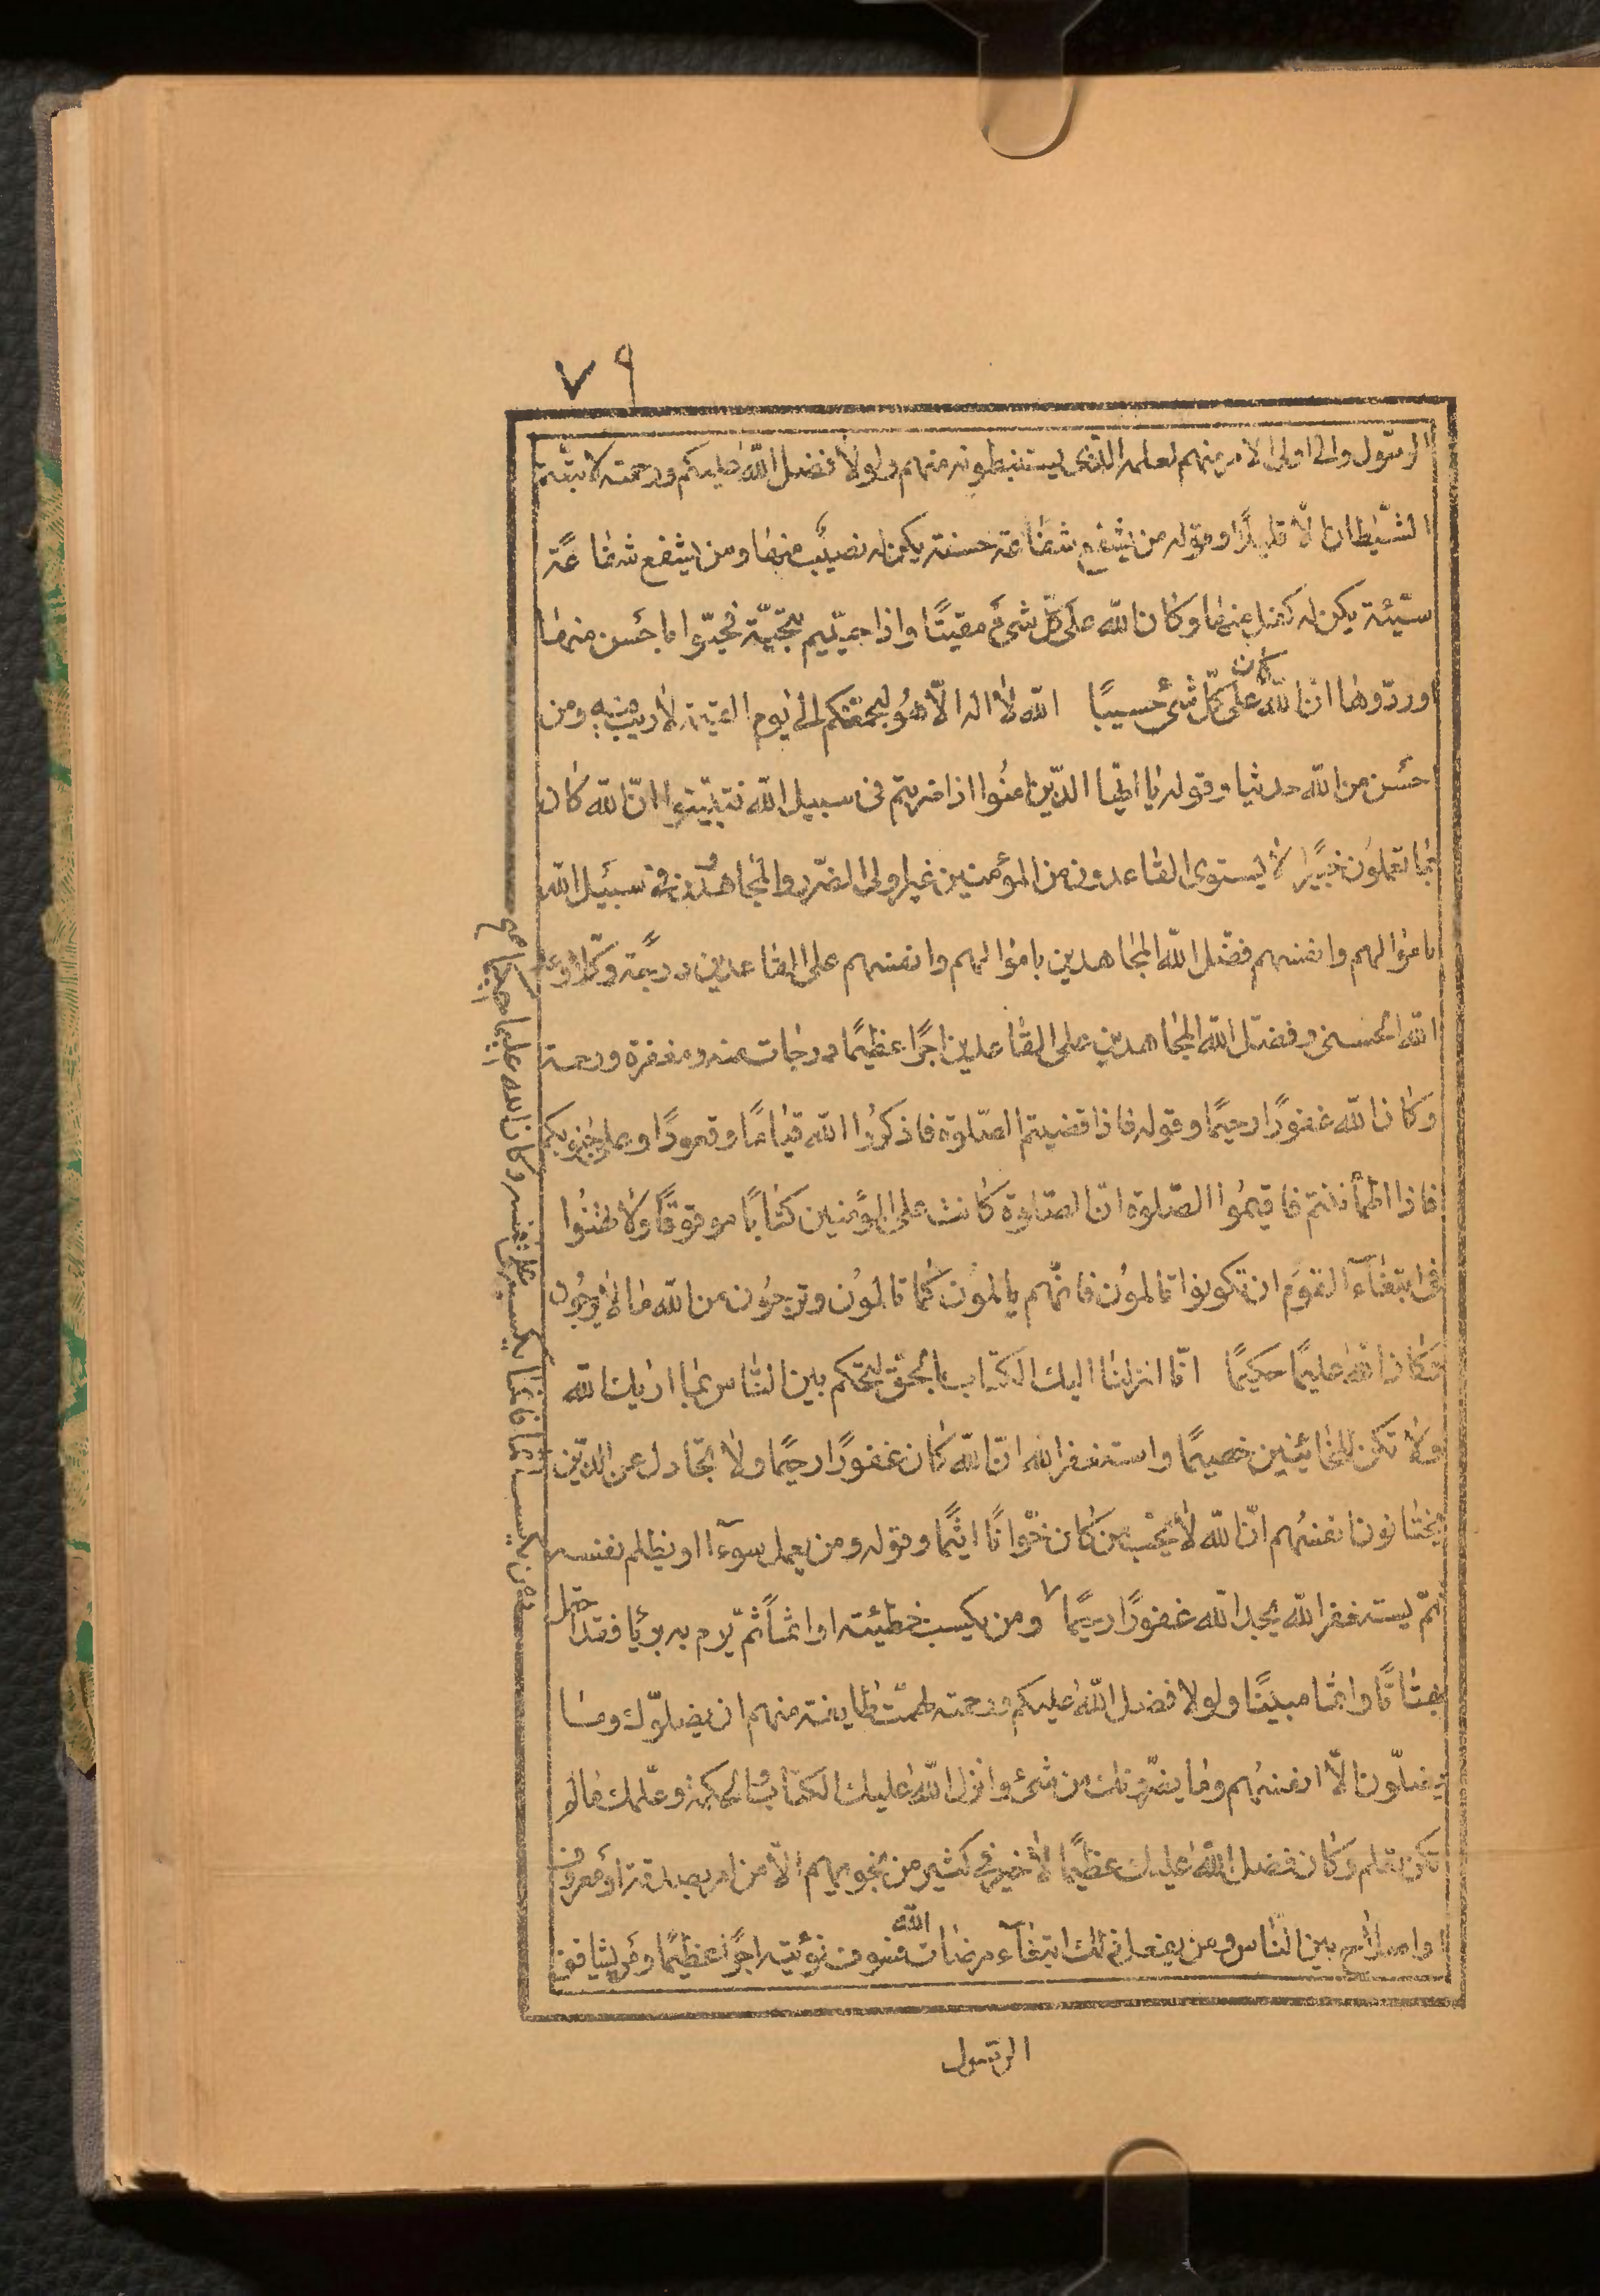 ٧٩
الرسّول والى اولى الامر منهم لعلمه الذّين يستنبطونه منهم ولولا فضل اللّه عليكم ورحمته لاتبّعتم
الشّيطان الّا قليلًا وقوله من يشفع شفاعة حسنة يكن له نصيبٌ منها ومن يشفع شفاعةً
سيّئة يكن له كفل منها وكان اللّه على كلّ شىءٍ مقيتًا واذا حيّيتم بتحيّة فحيّوا باحسن منها
اوردّوها انّ اللّه كان على كلّ شىء حسيبًا اللّه لا اله الّا هو ليجمعنّكم الى يوم القيمة لاريب فيه ومن
احسن من اللّه حديثا وقوله يا ايّها الذّين امنوا اذا ضربتم فى سبيل اللّه فتبيّنوا انّ اللّه كان
بما تعملون خبيرًا لا يستوى القاعدون من المؤمنين غير اولى الضّرر والمجاهدون فى سبيل اللّه
باموالهم وانفسهم فضّل اللّه المجاهدين باموالهم وانفسهم على القاعدين درجة وكلّا وعد
اللّه الحسنى وفضّل اللّه المجاهدين على القاعدين اجرًا عظيمًا درجات منه ومغفرة ورحمة
وكان اللّه غفورًا رحيمًا وقوله فاذا قضيتم الصّلوة فاذكروا اللّه قيامًا وقعودًا وعلى جنوبكم
فاذا اطمأننتم فاقيموا الصّلوة انّ الصّلوة كانت على المؤمنين كتابًا موقوتًا ولا تهنوا
فى ابتغآء القوم ان تكونوا تالمون فانّهم يالمون كما تالمون وترجون من اللّه ما لا يرجون
وكان اللّه عليمًا حكيمًا انّا انزلنا اليك الكتاب بالحقّ لتحكم بين النّاس بما اريك اللّه
ولا تكن للخائنين خصيمًا واستغفر اللّه انّ اللّه كان غفورًا رحيمًا ولا تجادل عن الذّين
يختانون انفسهم انّ اللّه لا يحبّ من كان خوّانًا اثيمًا وقوله ومن يعمل سوءًا او يظلم نفسه
ثمّ يستغفر اللّه يجد اللّه غفورًا رحيمًا ومن يكسب خطيئة او اثمًا ثمّ يرم به بريًا فقد احتمل
بهتانًا واثمًا مبينًا ولولا فضل اللّه عليكم ورحمته لهمّت طايفة منهم ان يضلوّك وما
يضلّون الّا انفسهم وما يضرّونك من شىء وانزل اللّه عليك الكتاب والحكمة وعلّمك مالم
تكن تعلم وكان فضل اللّه عليك عظيمًا لا خير فى كثير من نجويهم الّا من امر بصدقة او معروف
او اصلاح بين النّاس ومن يفعل ذلك ابتغآء مرضات اللّه فسوف نؤتيه اجرًا عظيمًا ومن يشاقق
الرّسول
ومن يكسب اثما فانما يكسبه على نفسه وكان الله عليما حكيما